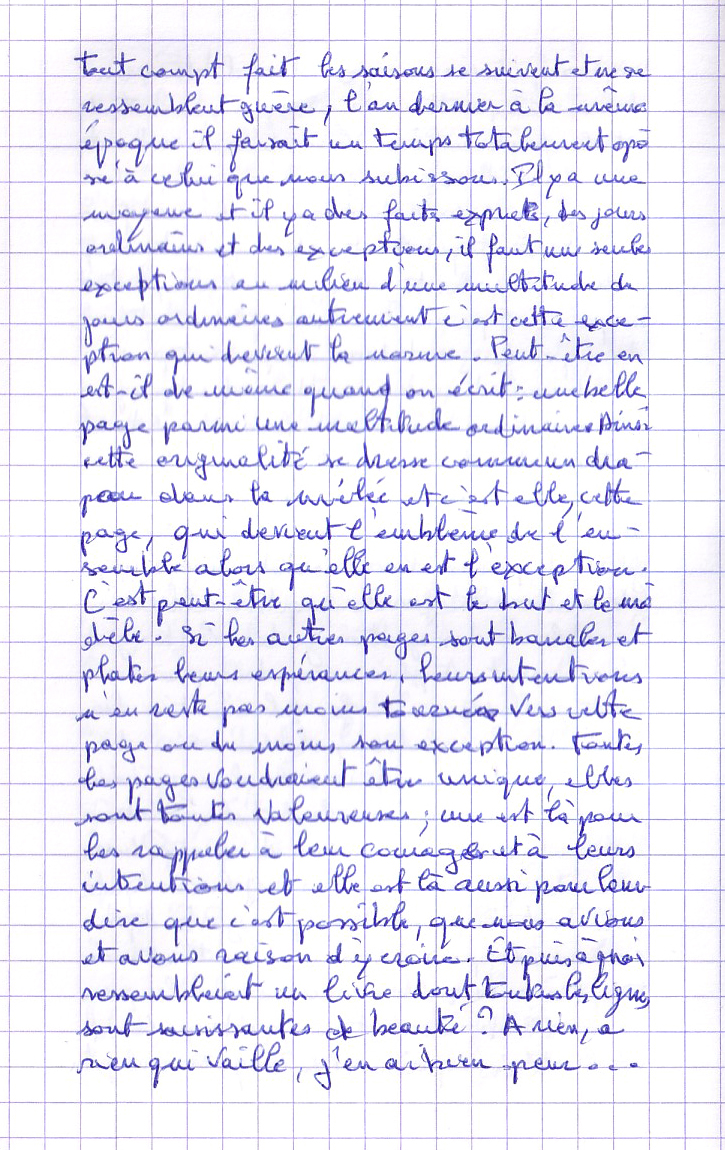 tout compt fait les saisons se suivent et ne se
ressemblent guère, l'an dernier à la même
époque il faisait un temps totalement opo
sé à celui que nous subissons. Il y a une
moyenne et il y a des faits exprets, des jours
ordinaires et des exceptions, il faut une seule
exceptions au milieu d'une multitude de
jours ordinaires autrement c'est cette exce-
ption qui devient la norme. Peut-être en
est-il de même quand on écrit : une belle
page parmi une multitude ordinaires Ainsi
cette originalité se dresse comme un dra-
peau dans la mêlée et c'est elle, cette
page, qui devient l'emblème de l'en-
semble alors qu'elle en est l'exception.
C'est peut-être qu'elle est le but et le mo
dèle. Si les autres pages sont banales et
plates leurs espérances, leurs intentions
n'en reste pas moins tournées vers cette
page ou du moins son exception. Toutes
les pages voudraient être unique, elles
sont toutes valeureuses ; une est là pour
les rappeler à leur courage et à leurs
intentions et elle est là aussi pour leur
dire que c'est possible, que nous avions
et avons raison d'y croire. Et puis à quoi
ressemblerait un livre dont toutes les lignes
sont saisissantes de beauté ? A rien, a
rien qui vaille, j'en ai bien peur...